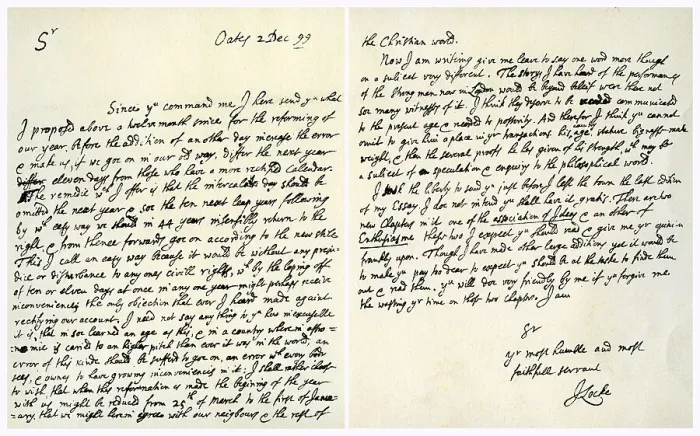 Sr
Oates 2 Dec 99
Since yu command me I here send yu what
I proposd above a twelvemonth since for the reforming of
our year. Before the addition of another day increase the error
& make us, if we goe on in our old way, differ the next year
eleven days from those who have a more rectified Calendar.
The remedie wch I offer is that the intercalate day should be
omitted the next year & soe the ten next leap years following
by wch easy way we should in 44 years insensibly return to the
right & from thence forwards goe on according to the new stile
This I call an easy way because it would be without any preju-
dice or disturbance to any ones civill rights, wch by the loping off
of ten or eleven days at once in any one year might perhaps receive
inconvenience, the only objection that ever I heard made against
rectifying our account. I need not say any thing to yu how inexcusable
it is, that in soe learned an age as this, & in a country wherein astro=
=nomie is caried to an higher pitch then ever it was in the world, an
error of this kinde should be suffed to goe on, an error wch every body
sees, & ownes to have growing inconveniences in it: I shall rather choose
to wish that when this reformation is made the beginning of the year
with us might be reduced from 25th of March to the first of Janu=
=ary, that we might herein agree with our neigbours & the rest of
the Christian world.
Now I am writing give me leave to say one word more though
on a subject very different. The storys I have heard of the performances
of the strong man now in London would be beyond beleif were there not
soe many witnesses of it. I think they deserve to be communicated
to the present age & recorded to posterity. And therefor I think yu cannot
omit to give him a place in yr transactions his, age, stature & make
weight, & then the severall proofs he has given of his strength, wch may be
a subject of speculation & enquiry to the philosophical world.
I took the liberty to send yu just before I left the town the last edition
of my Essay I doe not intend yu shall have it gratis. There are two
new Chapters in it one of the association of Ideas & an other of
Enthusiasme these two I expect yu should read & give me yr opinion
frankly upon. Though I have made other large additions yet it would be
to make yu pay too dear to expect yu should be at the to finde them
out & read them. yu will doe very friendly by me if yu forgive me
the wasting yr time on these two chapters. I am
Sr
yr most humble and most
faithfull servant
J Locke